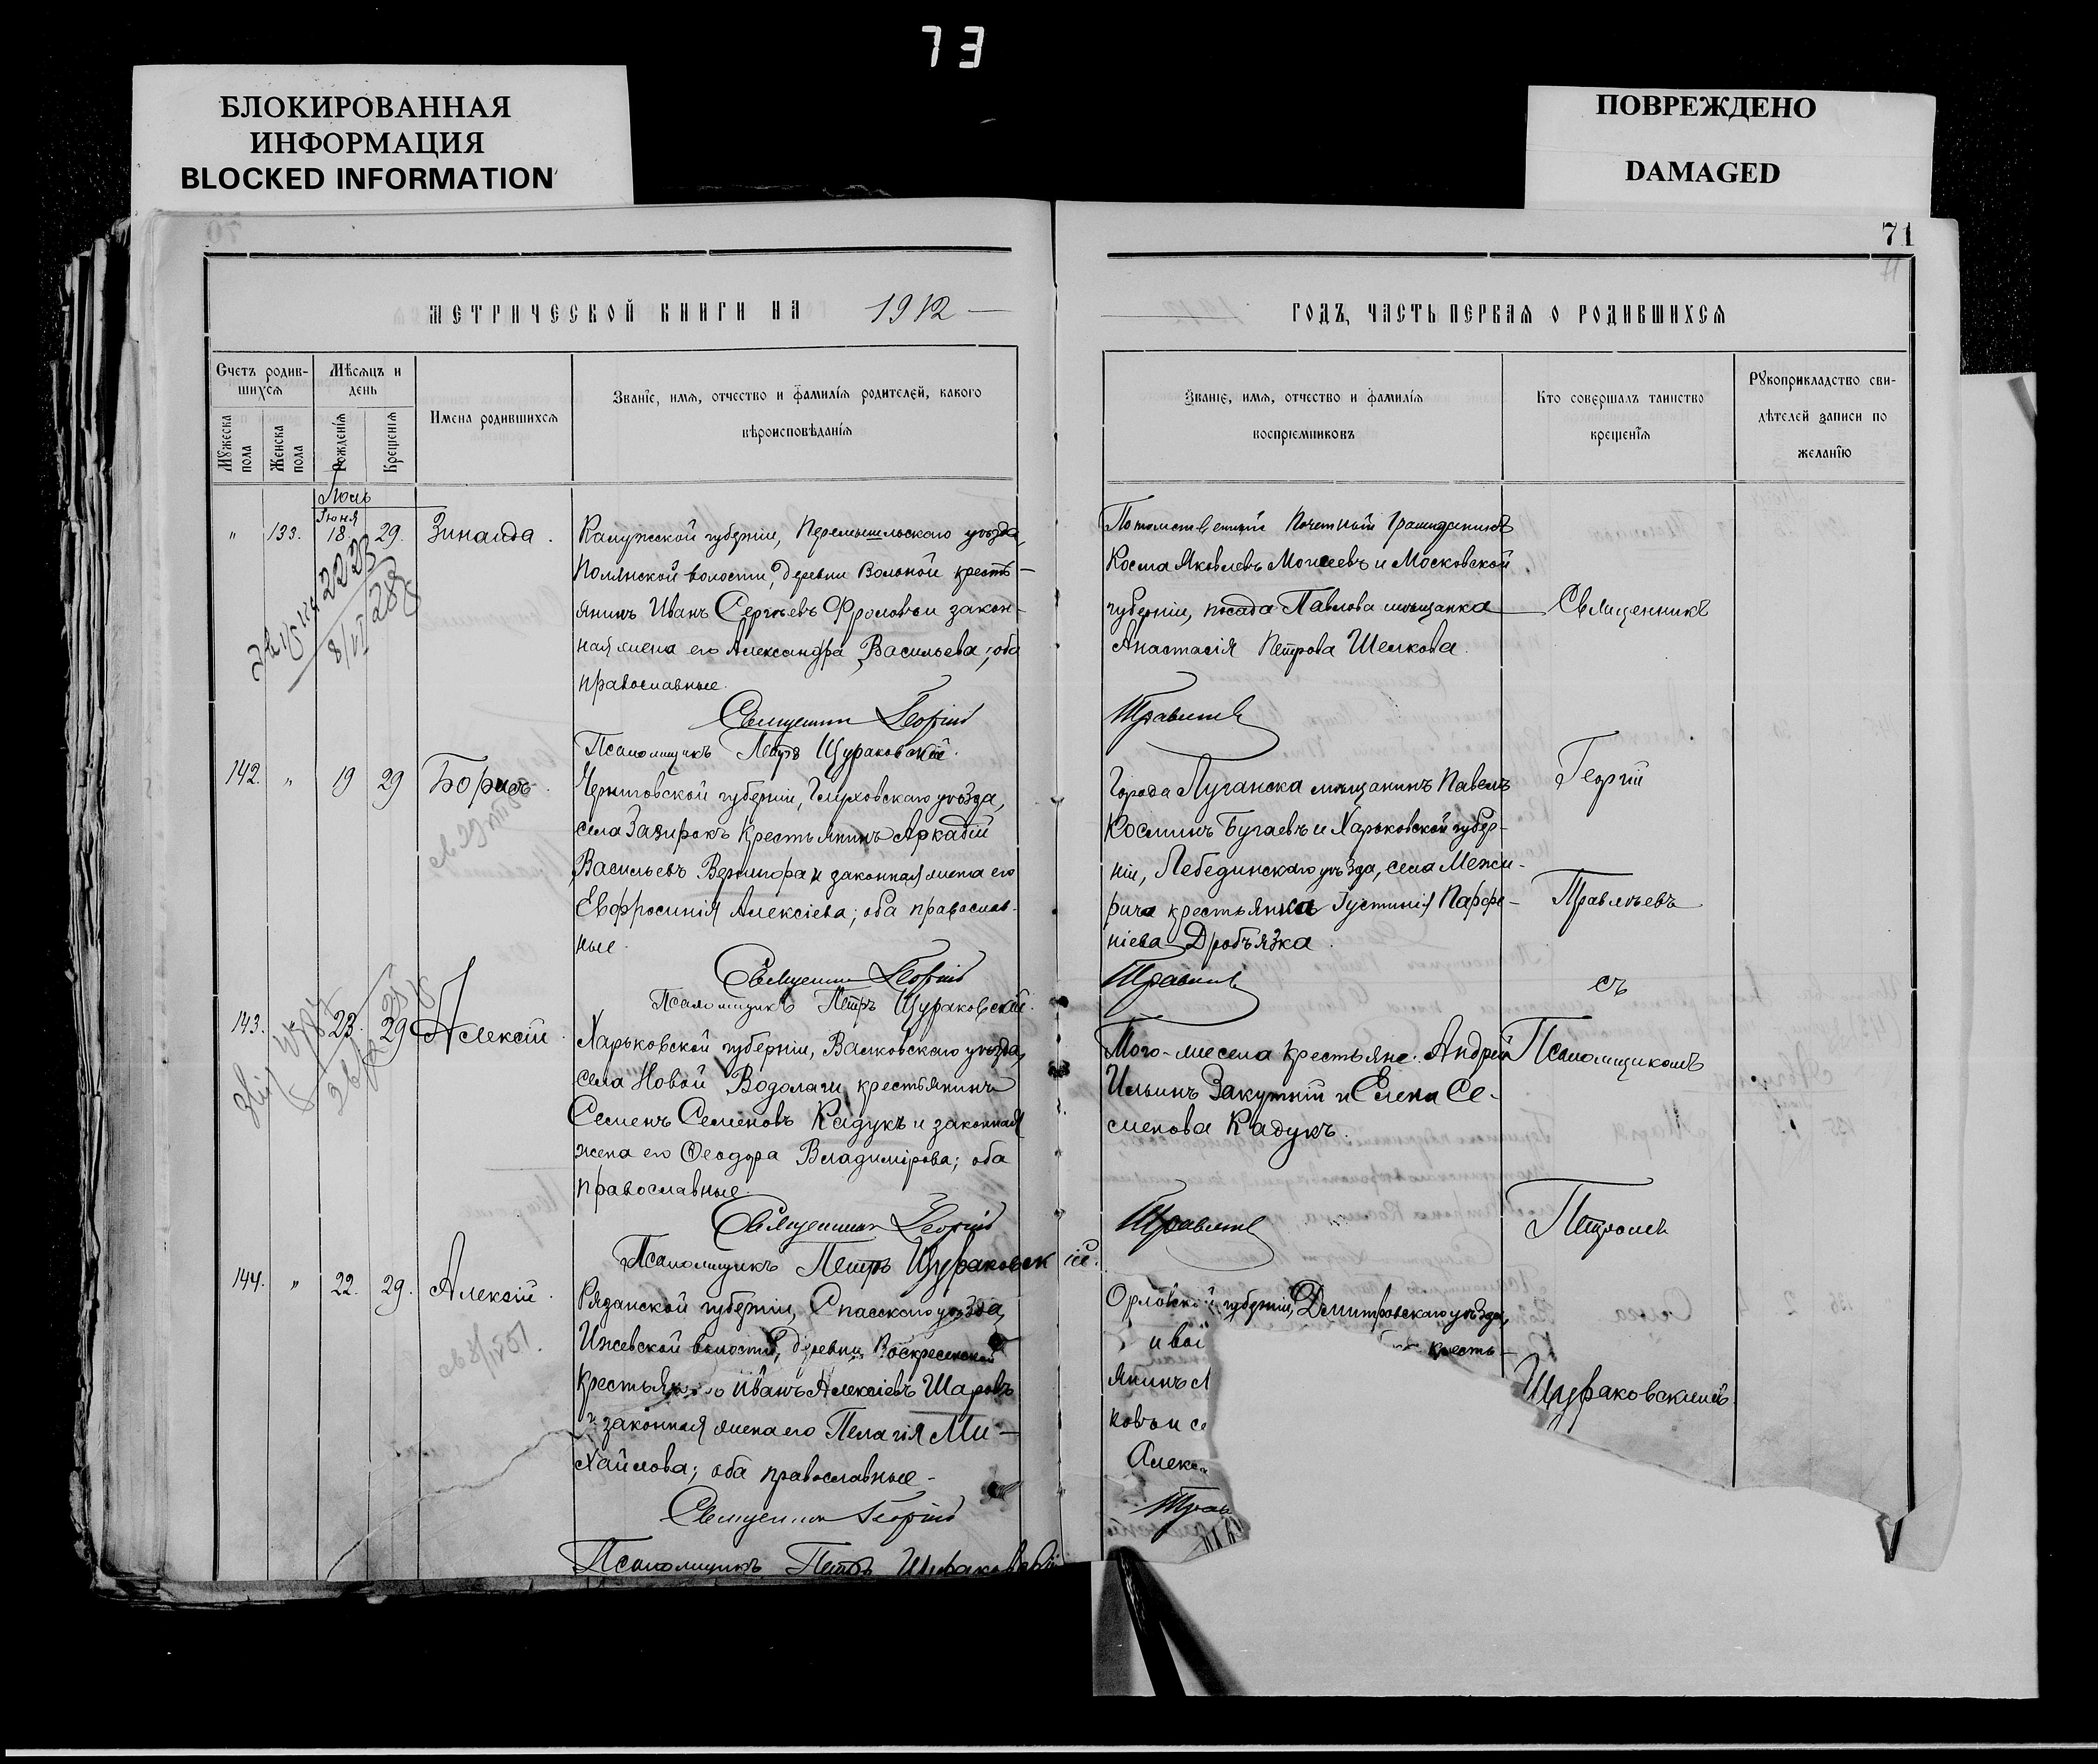 73
БЛОКИРОВАННАЯ
ИНФОРМАЦИЯ
BLOCKED INFORMATION
ПОВРЕЖДЕНО
DAMAGED
71
МЕТРИЧЕСКОЙ КНИГИ НА 1912
ГОДЪ, ЧАСТЬ ПЕРВАЯ О РОДИВШИХСЯ
Счетъ родив-
шихся
Мѣсяцъ и
день
Мужеска
пола
Женска
пола
Рожденія
Крещенія
Имена родившихся
Званіе, имя, отчество и фамилія родителей, какого
вѣроисповѣданія
Званіе, имя, отчество и фамилія
воспріемниковъ
Кто совершалъ таинство
крещенія
Рукоприкладство сви-
дѣтелей записи по
желанію
Іюль
Іюня
" 133. 18. 29. Зинаида.
Калужской губерніи, Перемышльскаго уѣзда,
Полянской волости, деревни Вольной кресть-
янинъ Иванъ Сергѣевъ Фроловъ и закон-
ная жена его Александра Васильева; оба
православные.
Священникъ Георгій
Псаломщикъ Петръ Щураковскій.
Потомственный Почетный Гражданинъ
Косма Яковлевъ Моисеевъ и Московской
губерніи, посада Павлова мѣщанка
Анастасія Петрова Шелкова.
Правлѣевъ
Священникъ
142. " 19 29 Борисъ.
Черниговской губерніи, Глуховскаго уѣзда,
села Зазирокъ крестьянинъ Аркадій
Васильевъ Вернигора и законная жена его
Евфросинія Алексіева; оба православ-
ные.
Священникъ Георгій
Псаломщикъ Петръ Щураковскій.
Города Луганска мѣщанинъ Павелъ
Косминъ Бугаевъ и Харьковской губер-
ніи, Лебединскаго уѣзда, села Межи-
рича крестьянка Іустинія Парфе-
ніева Дробъязка.
Правлѣевъ
Георгій
Правлѣевъ
съ
143. 23. 29 Алексій.
Харьковской губерніи, Валковскаго уѣзда,
села Новой Водолаги крестьянинъ
Семенъ Семеновъ Кадукъ и законная
жена его Ѳеодора Владимірова; оба
православные.
Священникъ Георгій
Псаломщикъ Петръ Щураковскій.
Того-же села крестьяне: Андрей
Ильинъ Закутній и Елена Се-
менова Кадукъ.
Правлѣевъ
Псаломщикомъ
Петромъ
144. " 22. 29. Алексій.
Рязанской губерніи, Спасскаго уѣзда,
Ижевской волости, деревни Воскресенской
крестьянинъ Иванъ Алексіевъ Шаровъ
и законная жена его Пелагія Ми-
хайлова; оба православные.
Священникъ Георгій
Псаломщикъ Петръ Щураковскій
Орловской губерніи, Дмитровскаго уѣзда,
кресть-
янинъ
ковъ и
Алекс
Прав
Щураковскимъ.